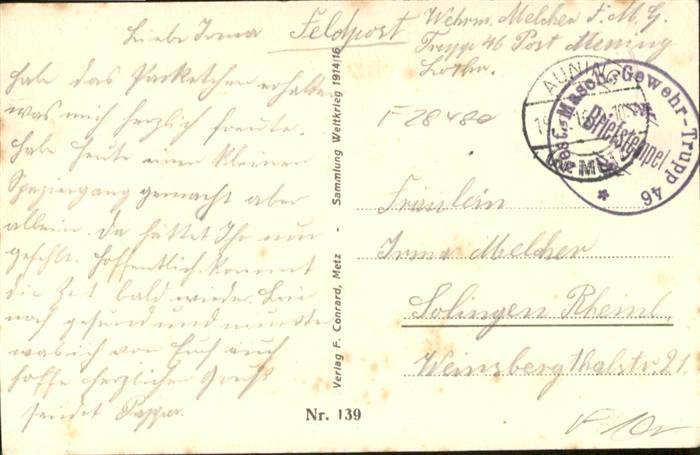 Liebe Irma
Habe das Packetchen erhalten
was mich herzlich freute.
Habe heute einen kleinen
Spaziergang gemacht aber
allein. Da hättet Ihr nur
gefehlt. Hoffentlich kommt
die Zeit bald wieder. Bin
noch gesund und munter
was ich von Euch auch
hoffe herzlichen Gruß
sendet Pappa.
Feldpost
Wehrm. Melcher F. M. G.
Trupp 46 Post Merning
Lothr.
F 28480
Fest.-Masch.-Gewehr-Trupp 46
Briefstempel
Fräulein
Irma Melcher
Solingen Rheinl.
Weinsbergthalstr. 21.
Verlag F. Conrard, Metz - Sammlung Weltkrieg 1914/16
Nr. 139